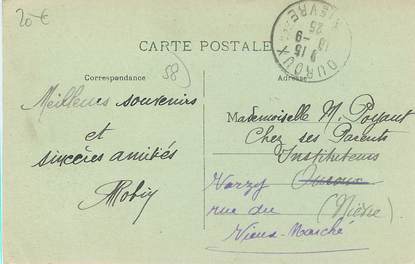 20 €
CARTE POSTALE
58
OUROUX
NIEVRE
9 15
10 - 9
25
Correspondance
Adresse
Meilleurs souvenirs
et
sincères amitiés
Mademoiselle M. Poyant
Chez ses Parents
Instituteurs
Varzy Ouroux
rue du (Nièvre)
Vieux-Marché